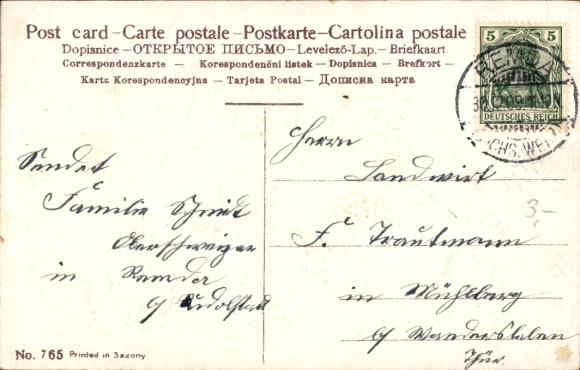 Post card – Carte postale – Postkarte – Cartolina postale
Dopisnice – ОТКРЫТОЕ ПИСЬМО – Levelező-Lap. – Briefkaart
Correspondenzkarte – Korespondenční lístek – Dopisnica – Brefkort –
Karta Korespondencyjna – Tarjeta Postal – Дописна карта
5 5
DEUTSCHES REICH
REMDA
Sendet
Familie Schmidt
Oberschweizer
in Remda
b/ Rudolstadt
Herrn
Landwirt
F. Trautmann
in Mühlberg
b/ Wandersleben
Thür.
3,-
No. 765 Printed in Saxony